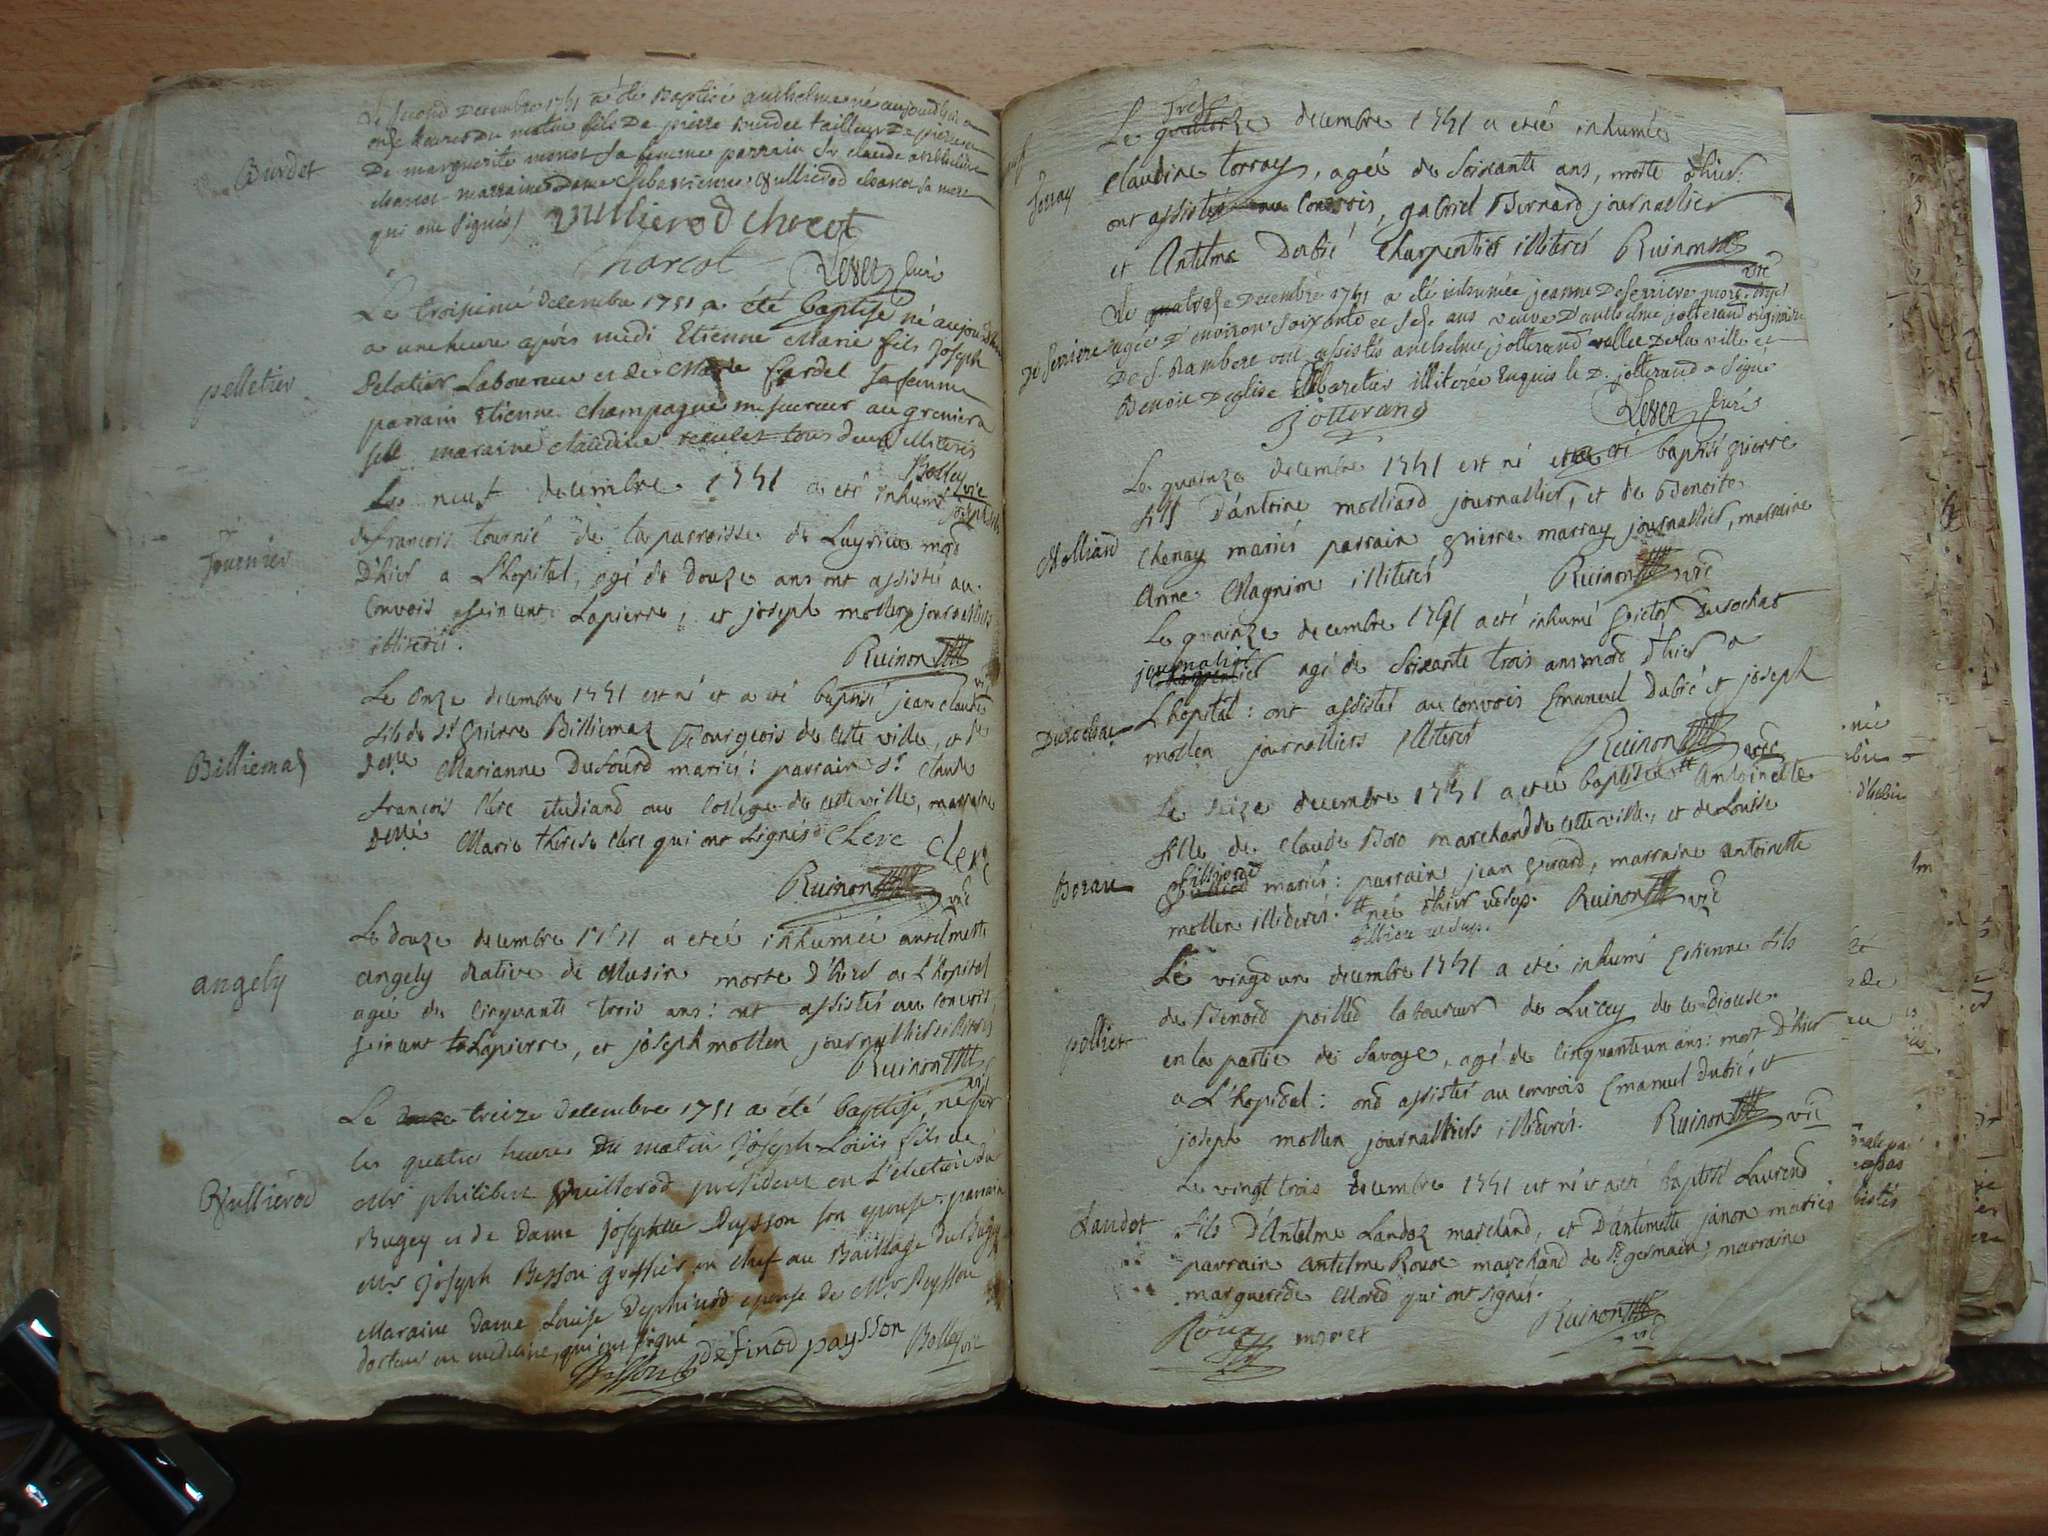 Burdet
Le second Decembre 1751 a été Baptisé anthelme né aujourdhui a
onze heures du matin fils De pierre Burdet tailleur De pierre et
De marguerite monet sa femme parrain Sr claude anthelme
charcot marraine Dame Sebastienne Vullierod charcot sa mere
qui ont signés / vullierod charcot
Charcot
curé
pelletier
Le troisieme decembre 1751 a été baptisé né aujourdhui
a une heure après midi Etienne Marie fils Joseph
Pelatier Laboureur et de Marie fardel sa femme
parrain Etienne Champagne mesureur au grenier a
sell maraine claudine tous deux illiteres
Bolley vic
fournier
Le neuf decembre 1751 a eté inhumé joseph fils
de francois tournié de la parroisse de Luyrieu mord
D'hier a L'hopital, agé de douze ans ont assistés au
Convois Lapierre, et joseph mollen journalliers
illiterés.
Ruinon vic
Billiemaz
Le onze decembre 1751 est né et a eté baptisé jean claude
fils de sr pierre Billiemaz Bourgeois de cette ville, et de
delle Marianne Dufourd mariés: parrain sr claude
françois Clerc etudiand au College de cette ville, marraine
delle Marie therese clerc qui ont signés Clerc Clerc
Ruinon vic
angely
Le douze decembre 1751 a eteé inhumée antelmette
angely native de Musin morte d'hier a L'hopital
agée de Cinquante trois ans: ont assistés au convois
Lapierre, et joseph mollen journalliers illiterés
Ruinon vic
Vullierod
Le treize decembre 1751 a été baptisé, né sur
les quatre heures du matin Joseph Louis fils de
Mr philibert Vuillerod president en L'election du
Bugey et de Dame Josephe Peysson son epouse parrain
Mr Joseph Besson greffier en chef au Baillage du Bugey
Maraine Dame Louise Dephinod epouse de Mr Peysson
docteur en medecine, qui ont signé
Besson définod paysson Bolley vic
Torray
Le treize decembre 1751 a eteé inhumée
Claudine torray, ageé de soixante ans, morte d'hier:
ont assistés au Convois, gabriel Bernard journallier
et Antelme Dubié Charpentier illiterés Ruinon
vic
De serriere
Le quatorze Decembre 1751 a été inhumée jeanne De serriere morte d'hyer
agée D'environ soixante et sese ans veuve D'anthelme jotterand originaire
De S. Rambert ont assistés anthelme jotterand vallet De la ville et
Benoit Deglise Cabaretier illiterée enquis le D. jotterand a signé
Jotterand
curé
Molliard
Le quainze decembre 1751 est né et a eté baptisé pierre
fils D'antoine molliard journallier, et de Benoite
Chenay mariés parrain pierre marray journallier, marraine
Anne Magnin illiterés Ruinon vic
Durochat
Le quainze decembre 1751 a eté inhumé Durochat
journalier agé de soixante trois ans mord d'hier a
L'hopital: ont assistés au convois Emanuel Dubié et joseph
mollen journalliers illiterés Ruinon vic
Bozau
Le seize decembre 1751 a eteé baptisée Antoinette
fille de Claude Bozo marchand de cette ville, et de Louise
mariés: parrain jean girard, marraine antoinette
mollen illiderés. née d'hier Ruinon vic
pollier
Le vingd un decembre 1751 a eté inhumé Etienne fils
de Benoid poilled laboureur de Lucey de ce diocese
en la partie de Savoye, agé de Cinquante un ans: mort D'hier
a L'hopidal: ond assistés au convois Emanuel dubié, et
joseph mollen journalliers illiderés. Ruinon vic
Landot
Le vingt trois decembre 1751 est né et a eté baptisé Laurend
fils D'Antelme Landoz marchand, et D'antelmette janon mariés
parrain antelme Roux marchand de St germain, marraine
marguerede Mored qui ont signés.
Roux moret Ruinon
vic